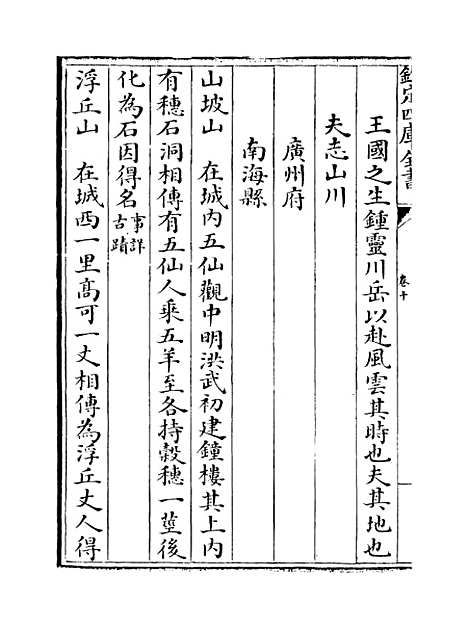 欽定四庫全書
卷十
王國之生鍾靈川岳以赴風雲其時也夫其地也
夫志山川
廣州府
南海縣
山坡山 在城內五仙觀中明洪武初建鐘樓其上內
有穗石洞相傳有五仙人乘五羊至各持穀穗一莖後
化為石因得名事詳古蹟
浮丘山 在城西一里髙可一丈相傳為浮丘丈人得